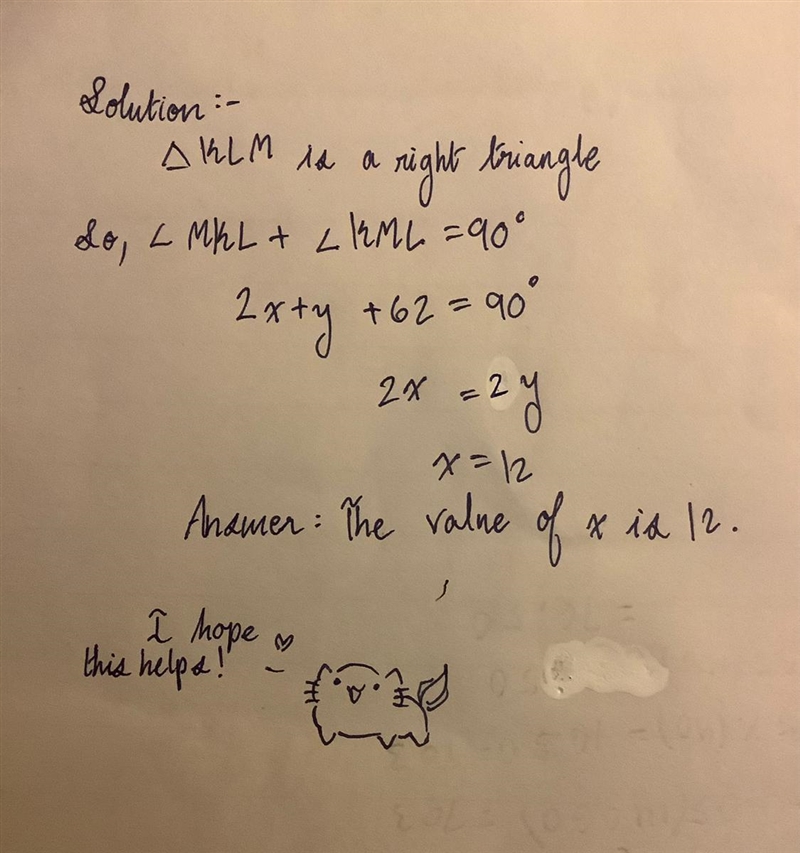 Solution :-
△KLM is a right triangle
So, ∠MKL + ∠KML = 90°
2x+4 +62 = 90°
2x = 24
x = 12
Answer: The value of x is 12.
I hope
this helps!